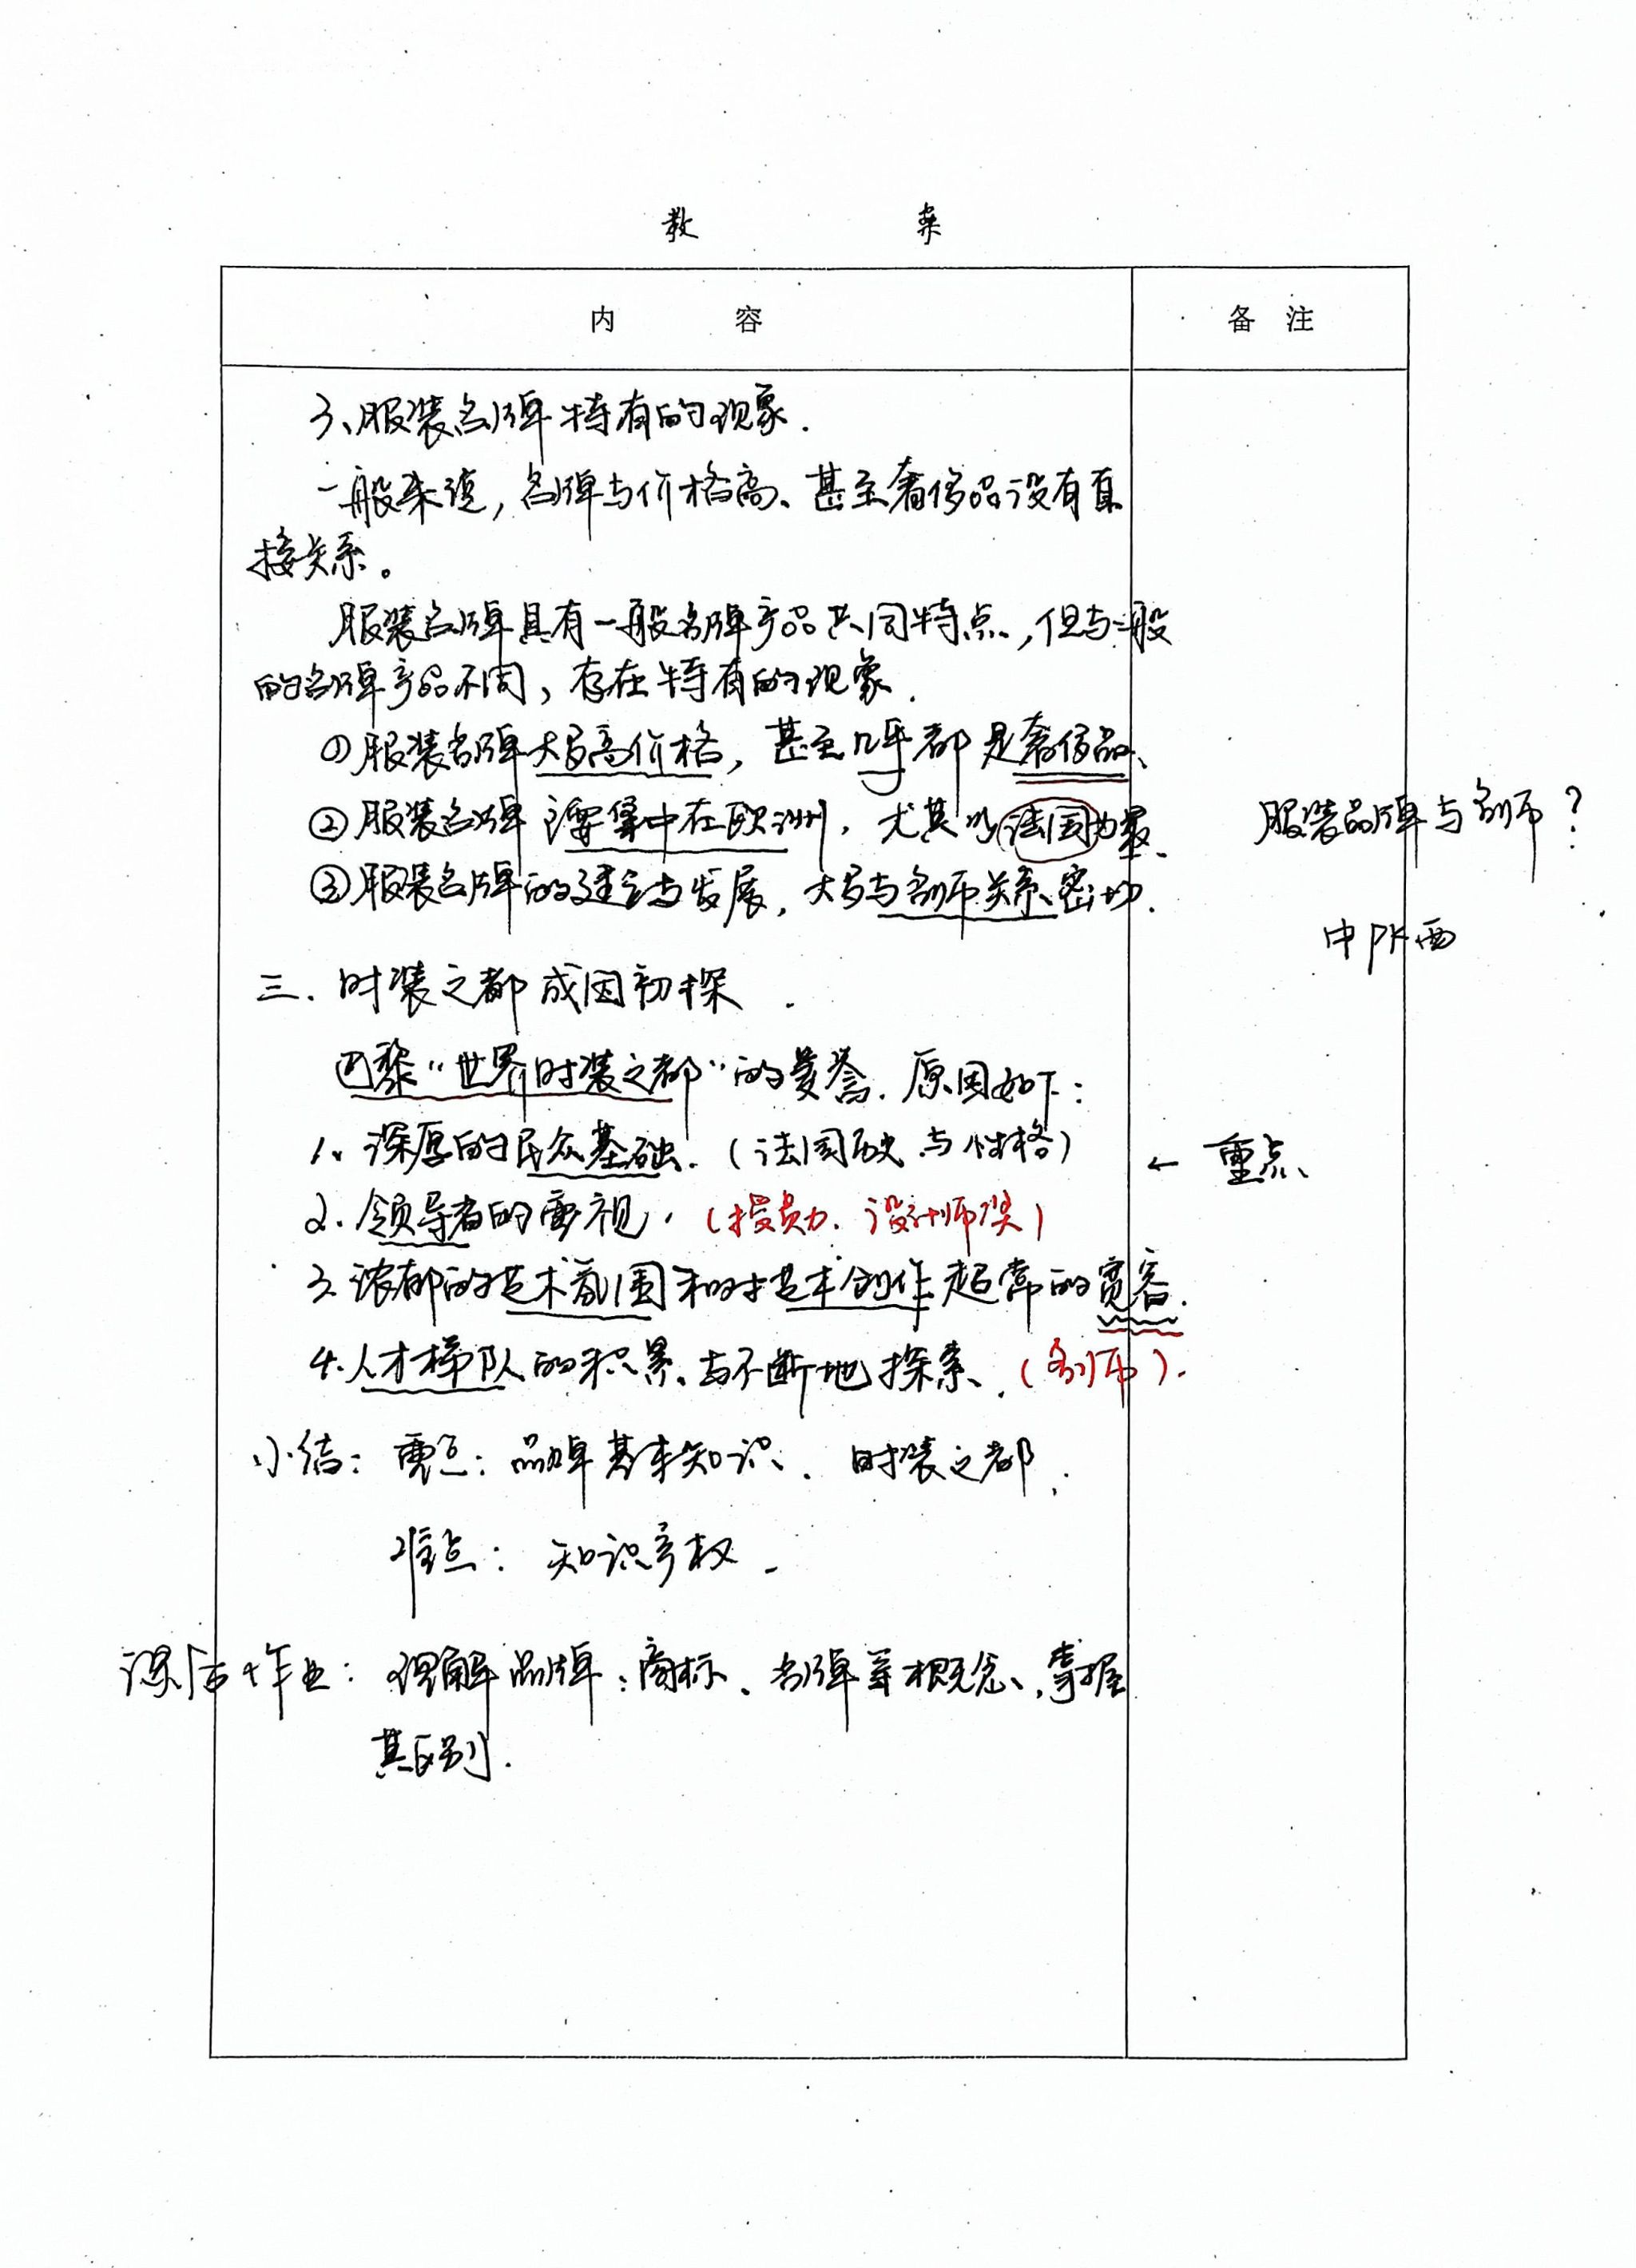 教 案
内 容
备 注
3、服装名牌特有的现象.
一般来说,名牌与价格高、甚至奢侈品没有直
接关系。
服装名牌具有一般名牌产品共同特点,但与一般
的名牌产品不同,存在特有的现象.
①服装名牌大多高价格,甚至几乎都是奢侈品、
②服装名牌主要集中在欧洲,尤其以法国为最、
服装品牌与名师?
③服装名牌的建立与发展,大多与名师关系密切.
中PK西
三.时装之都成因初探.
巴黎“世界时装之都”的美誉.原因如下:
1、深厚的民众基础.(法国历史与性格)
← 重点
2.领导者的重视.(授勋.设计师奖)
3.浓郁的艺术氛围和对艺术创作超常的宽容.
4.人才梯队的积累、与不断地探索、(名师).
小结:重点:品牌基本知识、时装之都.
难点:知识产权.
课后作业:理解品牌、商标、名牌等概念、掌握
其区别.